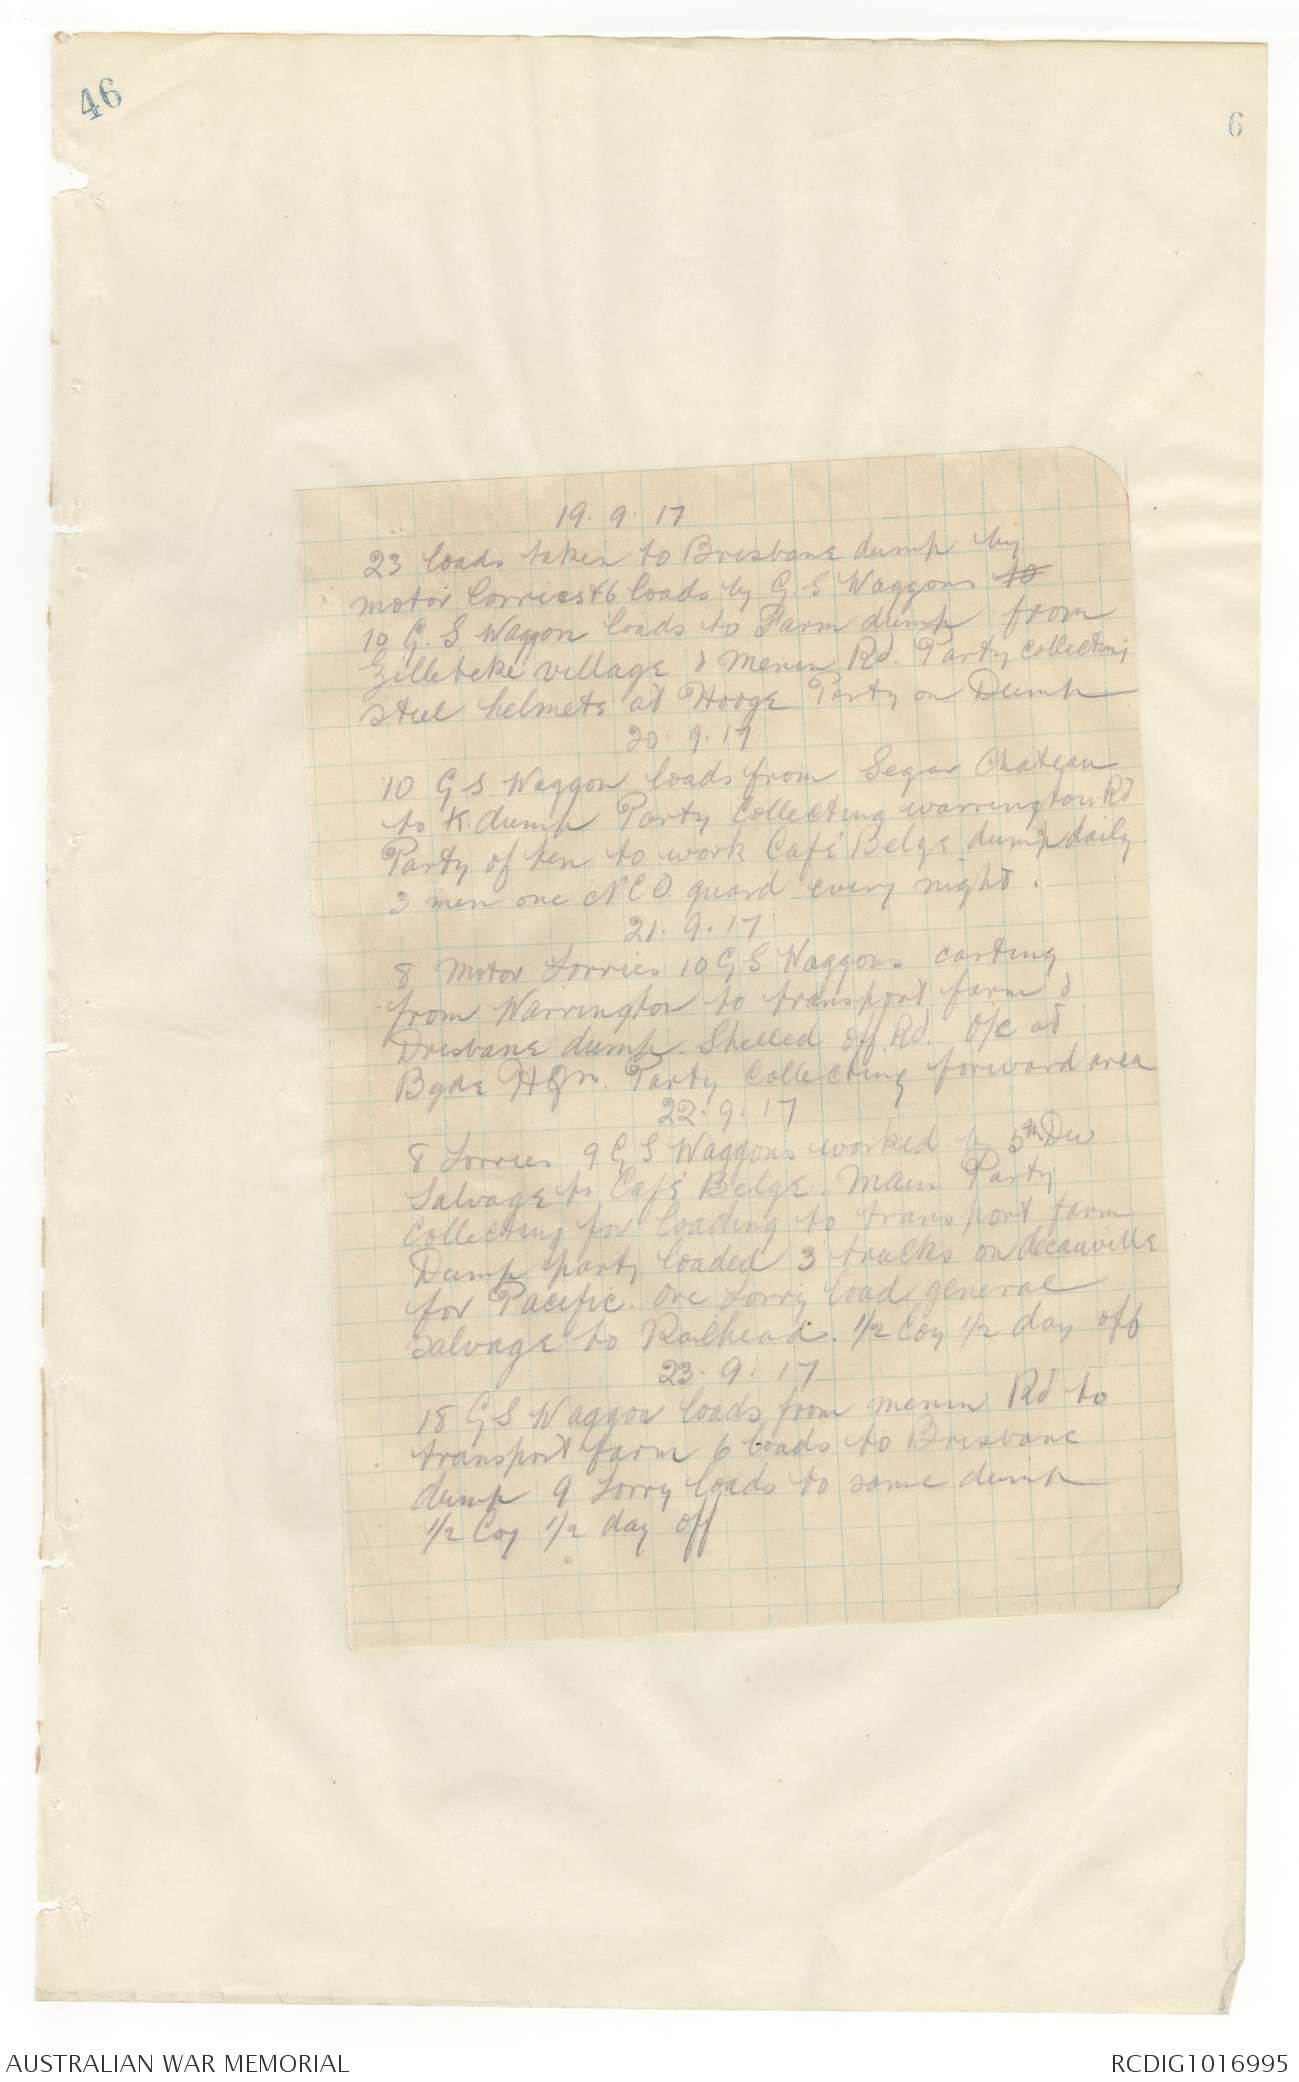 46
6
19. 9. 17
23 loads taken to Brisbane dump by
motor lorries & 6 loads by G S Waggons to
10 G. S. Waggon loads to Farm dump from
Zillebeke village & Menin Rd. Party collecting
steel helmets at Hooge. Party on Dump
20. 9. 17
10 G S Waggon loads from Segar Chateau
to K. dump Party Collecting Warrington Rd
Party of ten to work Café Belge dump daily
3 men one NCO guard every night.
21. 9. 17
8 Motor Lorries 10 G S Waggons carting
from Warrington to transport farm &
Brisbane dump. Shelled off Rd. O/C at
Bgde HQrs. Party Collecting forward area
22. 9. 17
8 Lorries 9 G S Waggons worked by 5th Div
Salvage to Café Belge. Main Party
Collecting for loading to transport farm
Dump party loaded 3 trucks on decauville
for Pacific. One Lorry load general
salvage to Railhead. 1/2 Coy 1/2 day off
23. 9. 17
18 G S Waggon loads from menin Rd to
transport farm 6 loads to Brisbane
dump 9 Lorry loads to same dump
1/2 Coy 1/2 day off
AUSTRALIAN WAR MEMORIAL
RCDIG1016995